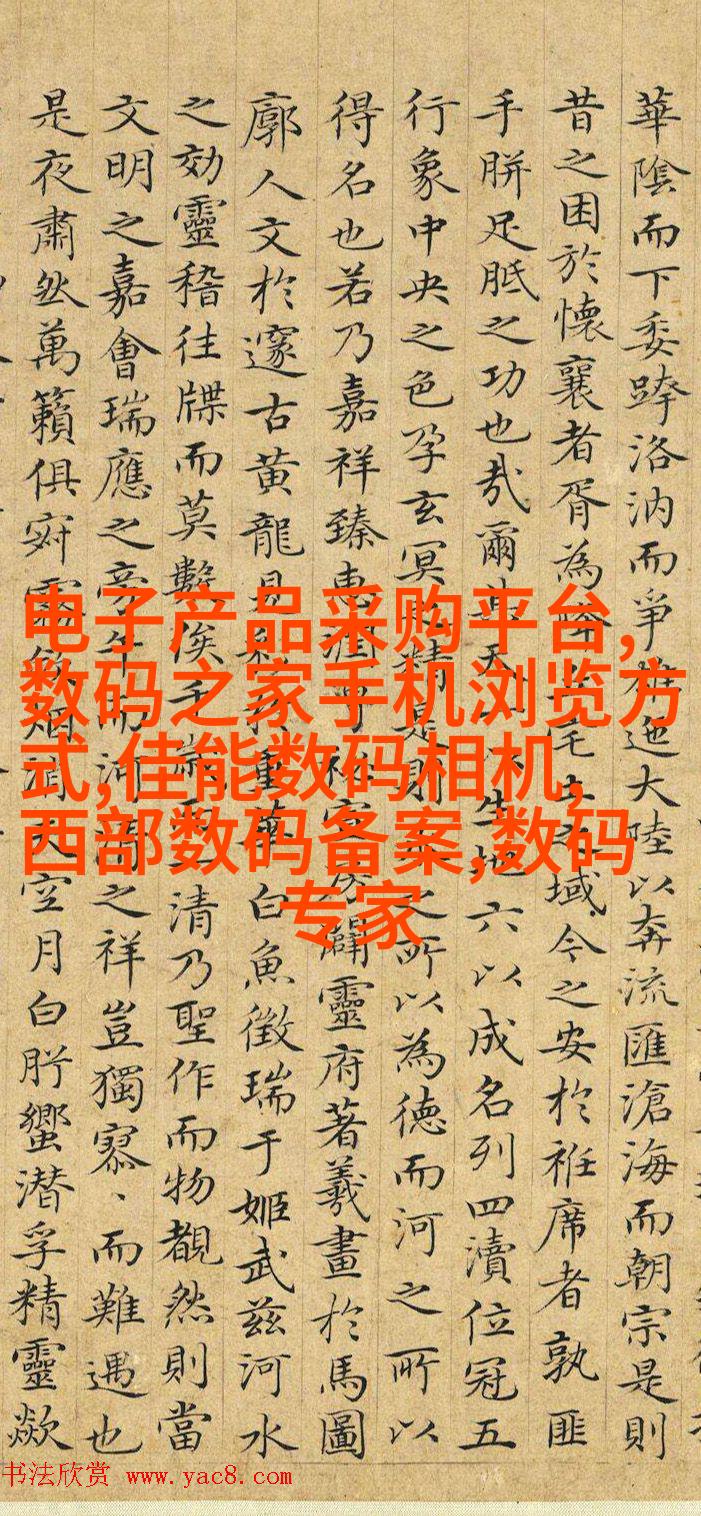 華陰而下委洛汭而爭雄迤大陸以奔流匯滄海而朝宗是則
昔之困於懷襄者胥為土之域今之安於袵席者孰匪
手胼足胝之功也哉爾其天一以生地六以成名列四瀆位冠五
行象中央之色孕玄冥精是則之所以為德而河之所以
得名也若乃嘉祥臻惠澤靈府著羲畫於馬圖
廓人文於邃古黃龍見重華白魚徵瑞于姬武茲河水
之効靈稽往牒而莫數俟千歲清乃聖作而物覩然則當
文明之嘉會瑞應之旁午而河清之祥豈獨寥、而難遇也
是夜肅然萬籟俱寂霧斂烟消天空月白肸蠁潛孚精靈歘
电子产品采购平台,
数码之家手机浏览方
式,佳能数码相机,
西部数码备案,数码
专家
书法欣赏 www.yac8.com